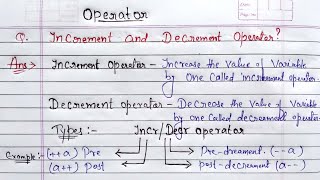 Operator
Q. Increment and Decrement Operator?
Ans → Increment operator - Increase the Value of Variable
by one called increment operator.
Decrement operator - Decrease the Value of Variable
by one called decrement operator.
Types :- Incr/Degr operator
Example :- (++a) Pre
Pre-drecement (--a)
(a++) Post
post-decrement (a--)